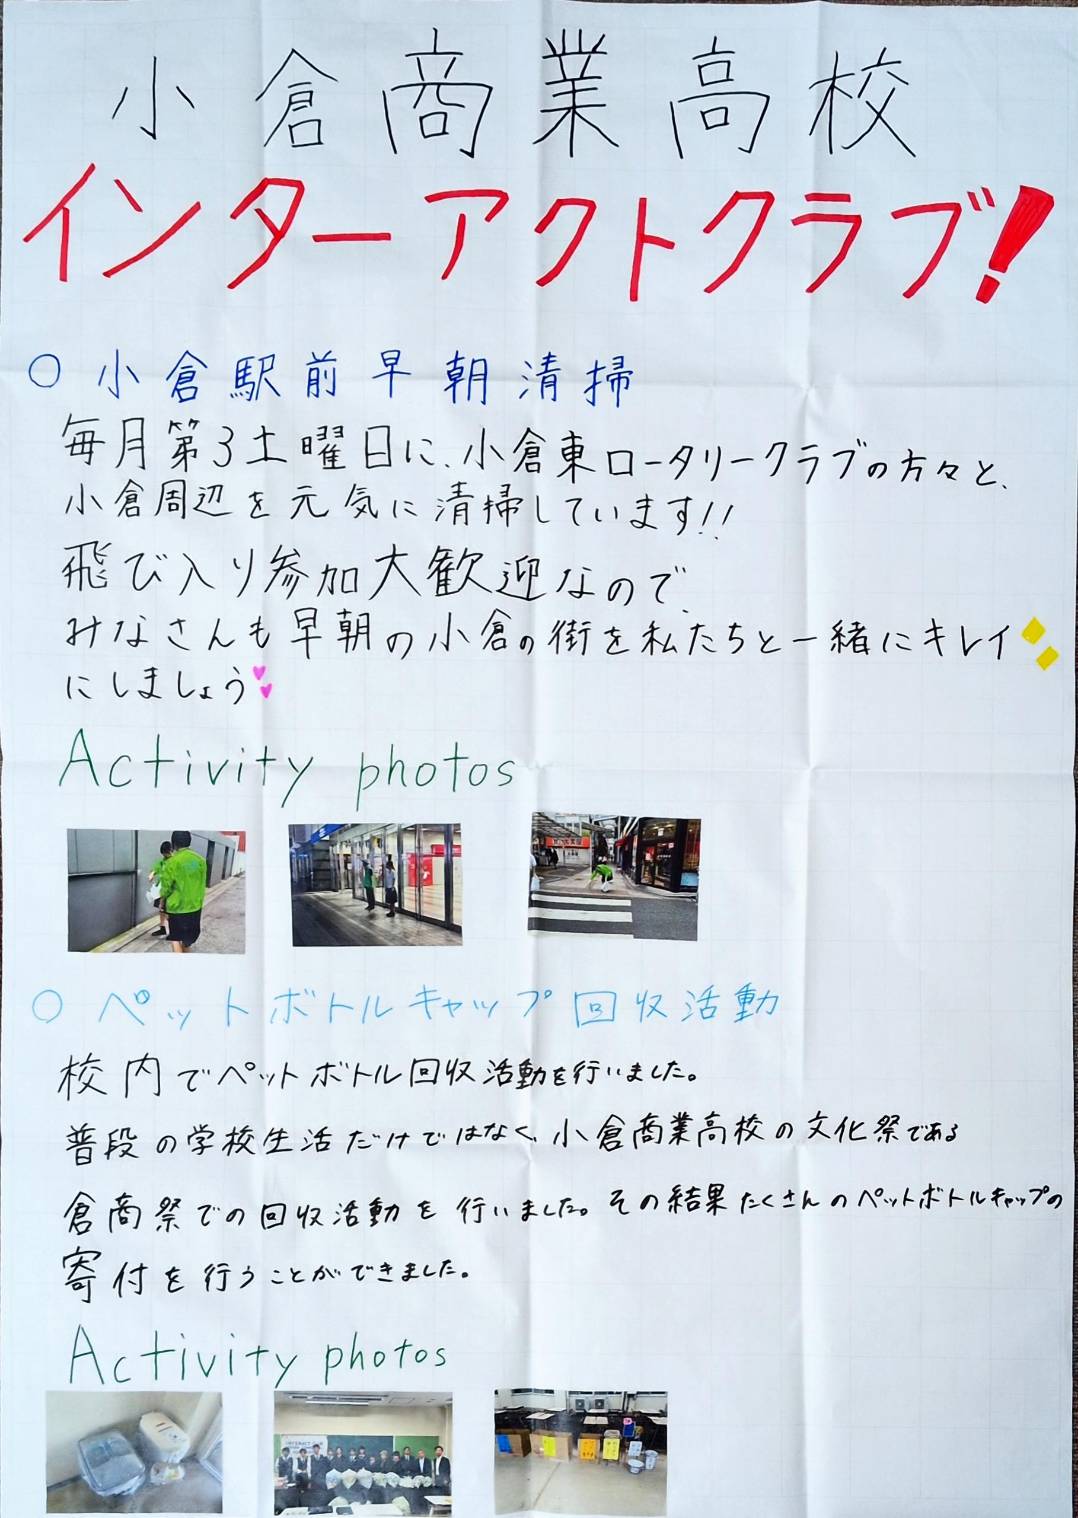 小倉商業高校
インターアクトクラブ!
○ 小倉駅前早朝清掃
毎月第3土曜日に、小倉東ロータリークラブの方々と、
小倉周辺を元気に清掃しています!!
飛び入り参加大歓迎なので、
みなさんも早朝の小倉の街を私たちと一緒にキレイ
にしましょう
Activity photos
○ ペットボトルキャップ回収活動
校内でペットボトル回収活動を行いました。
普段の学校生活だけではなく、小倉商業高校の文化祭である
倉商祭での回収活動を行いました。その結果たくさんのペットボトルキャップの
寄付を行うことができました。
Activity photos